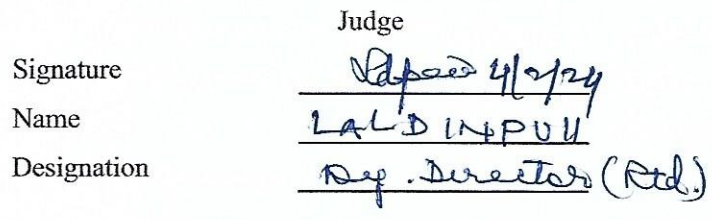 Judge
Signature 4/2/24
Name LALDINPUII
Designation Dy. Director (Rtd.)